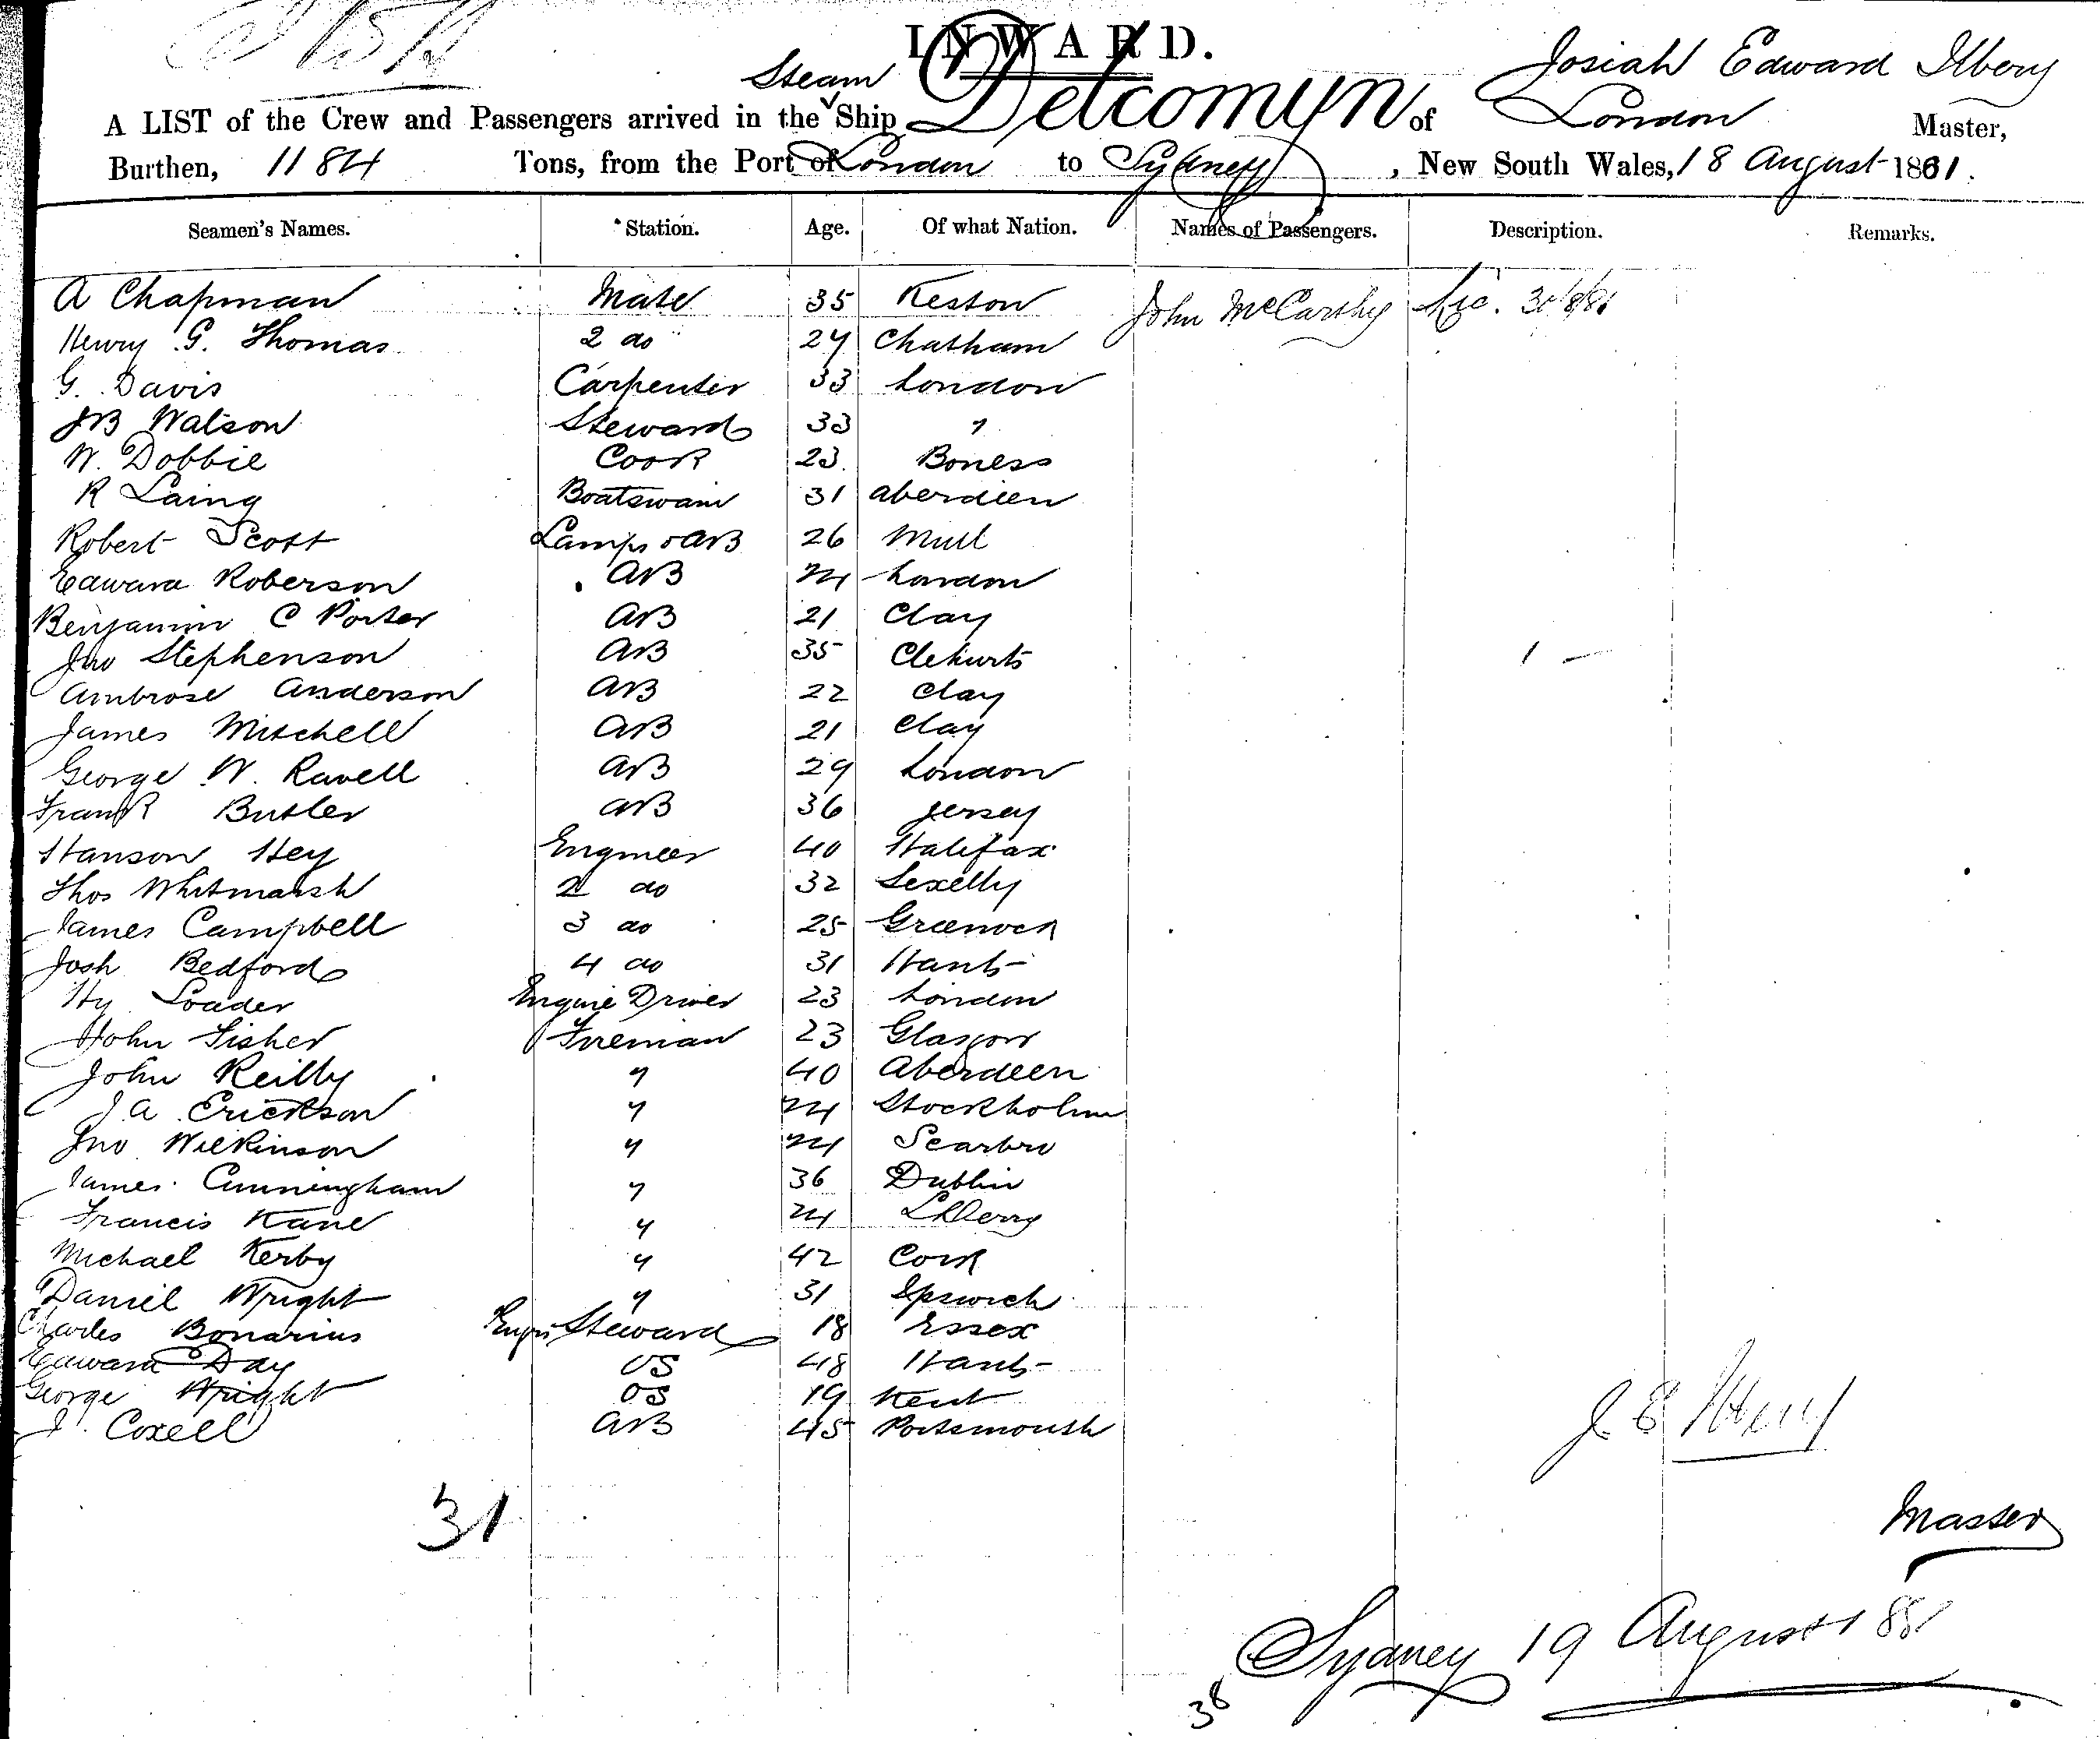 INWARD.
Josiah Edward Ilbery
A LIST of the Crew and Passengers arrived in the Steam Ship Delcomyn of London Master,
Burthen, 1184 Tons, from the Port of London to Sydney, New South Wales, 18 August 1881.
Seamen's Names. Station. Age. Of what Nation. Names of Passengers. Description. Remarks.
A Chapman Mate 35 Keston John McCarthy
Henry G. Thomas 2 do 24 Chatham
G. Davis Carpenter 33 London
JB Watson Steward 33 "
W. Dobbie Cook 23 Boness
R Laing Boatswain 31 Aberdeen
Robert Scott Lamps & AB 26 Mull
Edward Roberson AB 24 London
Benjamin C Porter AB 21 Clay
Jno Stephenson AB 35
Ambrose Anderson AB 22 Clay
James Mitchell AB 21 Clay
George W. Ravell AB 29 London
Frank Butler AB 36 Jersey
Hanson Hey Engineer 40 Halifax
Thos Whitmarsh 2 do 32
James Campbell 3 do 25 Greenock
Josh Bedford 4 do 31 Hants
Hy Loader Engine Driver 23 London
John Fisher Fireman 23 Glasgow
John Reilly " 40 Aberdeen
J A Erickson " 24 Stockholm
Jno Wilkinson " 24 Scarbro
James Cunningham " 36 Dublin
Francis Kane " 24 LDerry
Michael Kerby " 42 Cork
Daniel Wright " 31 Ipswich
Charles Bonarius Engrs Steward 18 Essex
Edward Day OS 48 Hants
George Wright OS 19 Kent
J. Coxell AB 45 Portsmouth
31
J E Ilbery
Master
Sydney 19 August 1881
38